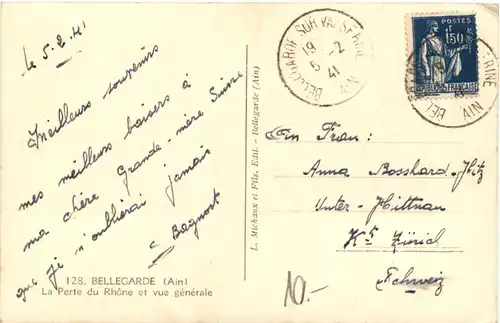 le 5.2.41
Meilleurs souvenirs
mes meilleurs baisers à
ma chère Grande-mère Suisse
que je n'oublierai jamais
S Bagnost
128. BELLEGARDE (Ain)
La Perte du Rhône et vue générale
L. Michaux et Fils, Edit. - Bellegarde (Ain)
BELLEGARDE SUR VALSERINE
19
5 -2
41
AIN
POSTES
1F50
REPUBLIQUE FRANÇAISE
BEL
ERINE
AIN
An Frau:
Anna Bosshard-Hitz
Unter-Hittnau
Kt. Zürich
Schweiz
10.-